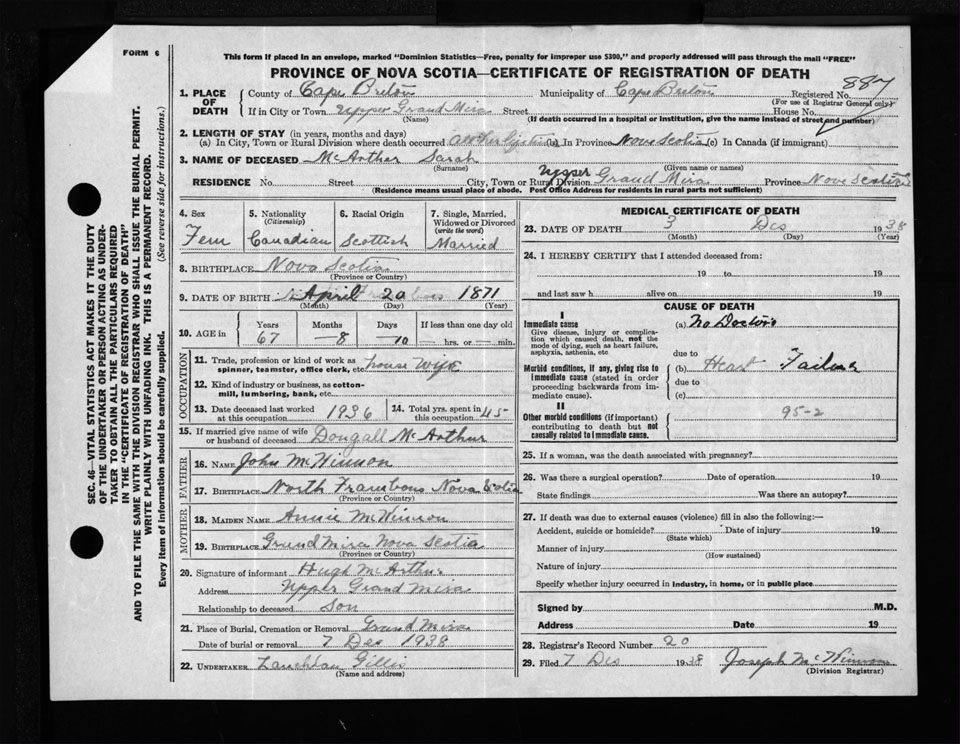 FORM 6
This form if placed in an envelope, marked "Dominion Statistics—Free, penalty for improper use $300," and properly addressed will pass through the mail "FREE"
PROVINCE OF NOVA SCOTIA—CERTIFICATE OF REGISTRATION OF DEATH
887
1. PLACE OF DEATH County of Cape Breton Municipality of Cape Breton Registered No.
(For use of Registrar General only)
If in City or Town Upper Grand Mira Street House No.
(Name) (If death occurred in a hospital or institution, give the name instead of street and number)
2. LENGTH OF STAY (in years, months and days)
(a) In City, Town or Rural Division where death occurred (b) In Province Nova Scotia (c) In Canada (if immigrant)
3. NAME OF DECEASED McArthur Sarah
(Surname) (Given name or names)
RESIDENCE No. Street City, Town or Rural Division Upper Grand Mira Province Nova Scotia
(Residence means usual place of abode. Post Office Address for residents in rural parts not sufficient)
4. Sex Fem
5. Nationality (Citizenship) Canadian
6. Racial Origin Scottish
7. Single, Married, Widowed or Divorced (write the word) Married
8. BIRTHPLACE Nova Scotia
(Province or Country)
9. DATE OF BIRTH April 20 1871
(Month) (Day) (Year)
10. AGE in Years Months Days If less than one day old
67 —8 —10 hrs. or min.
OCCUPATION
11. Trade, profession or kind of work as spinner, teamster, office clerk, etc. house wife
12. Kind of industry or business, as cotton-mill, lumbering, bank, etc.
13. Date deceased last worked at this occupation 1936
14. Total yrs. spent in this occupation 45
15. If married give name of wife or husband of deceased Dougall McArthur
FATHER
16. NAME John McKinnon
17. BIRTHPLACE North Framboys Nova Scotia
(Province or Country)
MOTHER
18. MAIDEN NAME Annie McKinnon
19. BIRTHPLACE Grand Mira Nova Scotia
(Province or Country)
20. Signature of informant Hugh McArthur
Address Upper Grand Mira
Relationship to deceased Son
21. Place of Burial, Cremation or Removal Grand Mira
Date of burial or removal 7 Dec 1938
22. UNDERTAKER Lauchlan Gillis
(Name and address)
MEDICAL CERTIFICATE OF DEATH
23. DATE OF DEATH 3 Dec 1938
(Month) (Day) (Year)
24. I HEREBY CERTIFY that I attended deceased from:
19 to 19
and last saw h alive on 19
CAUSE OF DEATH
I
Immediate cause (a) No Doctor
Give disease, injury or complication which caused death, not the mode of dying, such as heart failure, asphyxia, asthenia, etc
due to
Morbid conditions, if any, giving rise to immediate cause (stated in order proceeding backwards from immediate cause). (b) Heart Failure
due to
(c)
II
Other morbid conditions (if important) contributing to death but not causally related to immediate cause.
95-2
25. If a woman, was the death associated with pregnancy?
26. Was there a surgical operation? Date of operation 19
State findings Was there an autopsy?
27. If death was due to external causes (violence) fill in also the following:—
Accident, suicide or homicide? Date of injury 19
(State which)
Manner of injury
(How sustained)
Nature of injury
Specify whether injury occurred in industry, in home, or in public place
Signed by M.D.
Address Date 19
28. Registrar's Record Number 20
29. Filed 7 Dec 1938 Joseph McKinnon
(Division Registrar)
SEC. 46—VITAL STATISTICS ACT MAKES IT THE DUTY
OF THE UNDERTAKER OR PERSON ACTING AS UNDER-
TAKER TO OBTAIN ALL THE PARTICULARS REQUIRED
IN THE "CERTIFICATE OF REGISTRATION OF DEATH"
AND TO FILE THE SAME WITH THE DIVISION REGISTRAR WHO SHALL ISSUE THE BURIAL PERMIT.
WRITE PLAINLY WITH UNFADING INK. THIS IS A PERMANENT RECORD.
Every item of information should be carefully supplied. (See reverse side for instructions.)